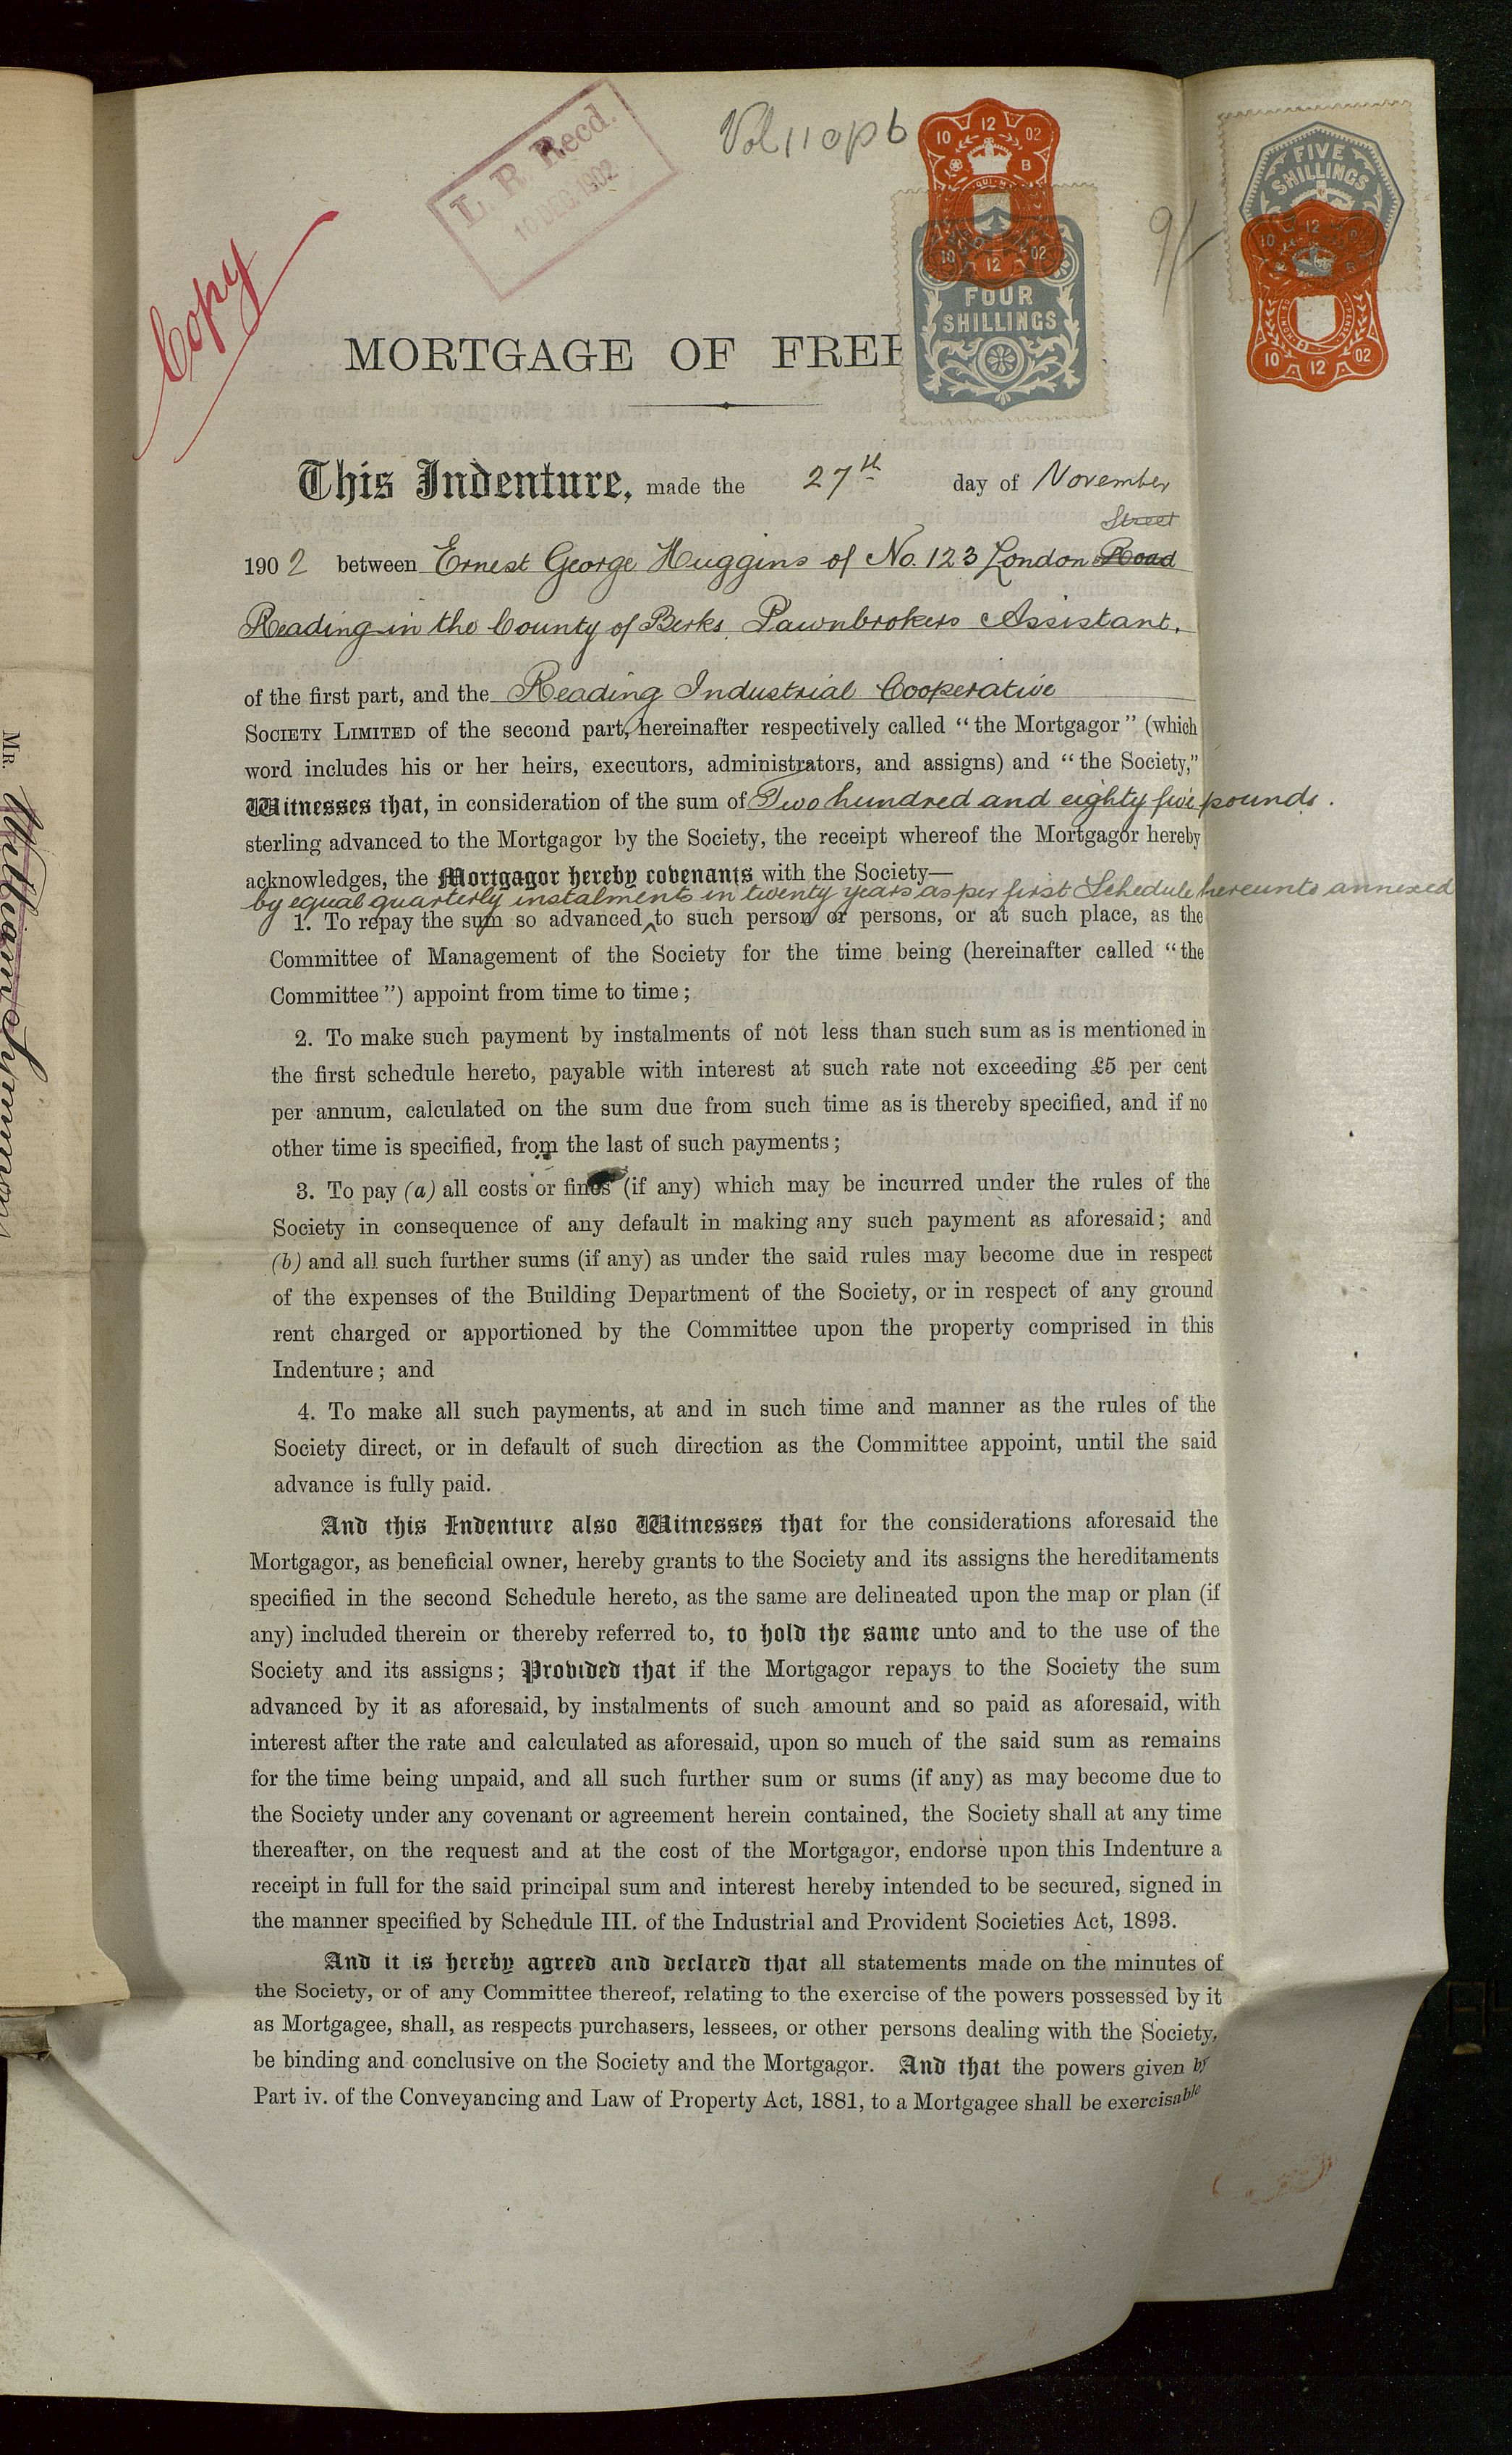 Vol 110 p b
L. R. Recd.
10 DEC 1902
Copy
10 12 02
B
10 12 02
FOUR
SHILLINGS
9/-
FIVE
SHILLINGS
10 12
10 12 02
MORTGAGE OF FREE
This Indenture, made the 27th day of November
Street
1902 between Ernest George Huggins of No. 123 London Road
Reading in the County of Berks Pawnbrokers Assistant,
of the first part, and the Reading Industrial Cooperative
SOCIETY LIMITED of the second part, hereinafter respectively called “the Mortgagor” (which
word includes his or her heirs, executors, administrators, and assigns) and “the Society,”
Witnesses that, in consideration of the sum of Two hundred and eighty five pounds.
sterling advanced to the Mortgagor by the Society, the receipt whereof the Mortgagor hereby
acknowledges, the Mortgagor hereby covenants with the Society—
by equal quarterly instalments in twenty years as per first Schedule hereunto annexed
1. To repay the sum so advanced ^ to such person or persons, or at such place, as the
Committee of Management of the Society for the time being (hereinafter called “the
Committee”) appoint from time to time;
2. To make such payment by instalments of not less than such sum as is mentioned in
the first schedule hereto, payable with interest at such rate not exceeding £5 per cent
per annum, calculated on the sum due from such time as is thereby specified, and if no
other time is specified, from the last of such payments;
3. To pay (a) all costs or fines (if any) which may be incurred under the rules of the
Society in consequence of any default in making any such payment as aforesaid; and
(b) and all such further sums (if any) as under the said rules may become due in respect
of the expenses of the Building Department of the Society, or in respect of any ground
rent charged or apportioned by the Committee upon the property comprised in this
Indenture; and
4. To make all such payments, at and in such time and manner as the rules of the
Society direct, or in default of such direction as the Committee appoint, until the said
advance is fully paid.
And this Indenture also Witnesses that for the considerations aforesaid the
Mortgagor, as beneficial owner, hereby grants to the Society and its assigns the hereditaments
specified in the second Schedule hereto, as the same are delineated upon the map or plan (if
any) included therein or thereby referred to, to hold the same unto and to the use of the
Society and its assigns; Provided that if the Mortgagor repays to the Society the sum
advanced by it as aforesaid, by instalments of such amount and so paid as aforesaid, with
interest after the rate and calculated as aforesaid, upon so much of the said sum as remains
for the time being unpaid, and all such further sum or sums (if any) as may become due to
the Society under any covenant or agreement herein contained, the Society shall at any time
thereafter, on the request and at the cost of the Mortgagor, endorse upon this Indenture a
receipt in full for the said principal sum and interest hereby intended to be secured, signed in
the manner specified by Schedule III. of the Industrial and Provident Societies Act, 1893.
And it is hereby agreed and declared that all statements made on the minutes of
the Society, or of any Committee thereof, relating to the exercise of the powers possessed by it
as Mortgagee, shall, as respects purchasers, lessees, or other persons dealing with the Society,
be binding and conclusive on the Society and the Mortgagor. And that the powers given by
Part iv. of the Conveyancing and Law of Property Act, 1881, to a Mortgagee shall be exercisable
MR.